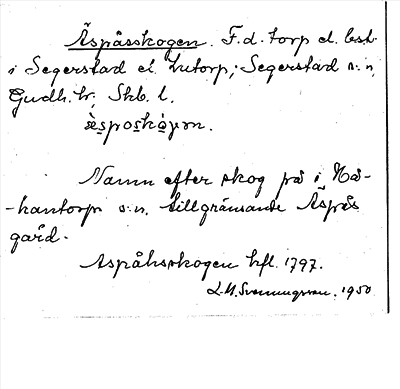 Äspåsskogen. F.d. torp el. best.
i Segerstad el. Lutorp, Segerstad s:n,
Gudh. hr; Skb. l.
Namn efter skog på i Hå-
-kantorp s:n. tillgränsande Äspås
gård.
Aspåhsskogen hfl. 1797.
L-M. Svenungsson. 1950